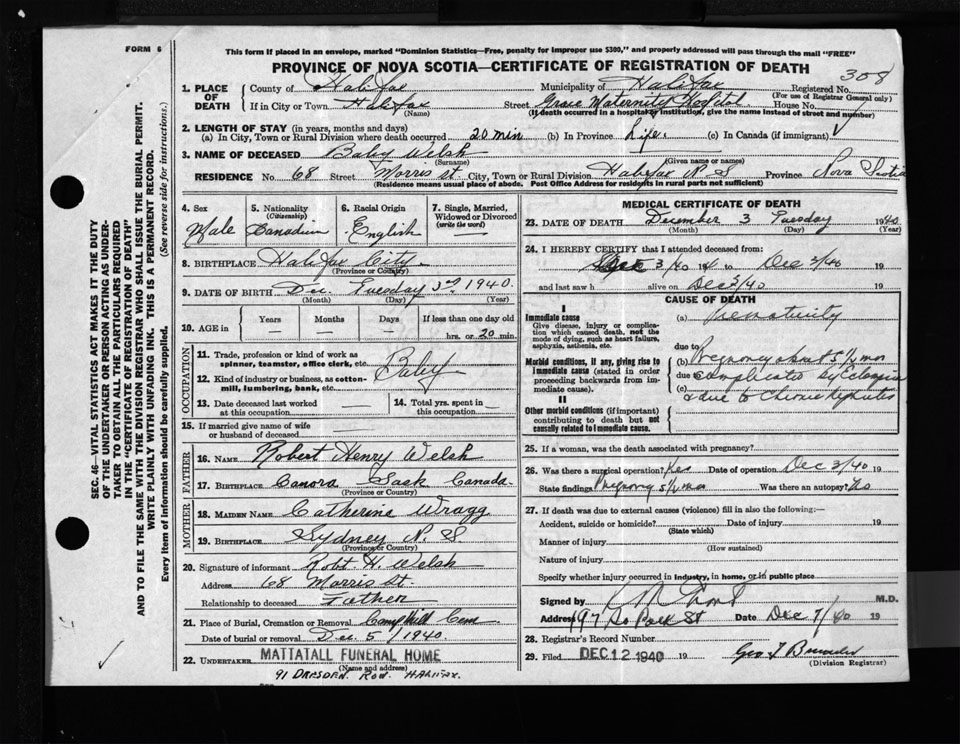 FORM 6
This form if placed in an envelope, marked "Dominion Statistics—Free, penalty for improper use $300," and properly addressed will pass through the mail "FREE"
PROVINCE OF NOVA SCOTIA—CERTIFICATE OF REGISTRATION OF DEATH
308
SEC. 46—VITAL STATISTICS ACT MAKES IT THE DUTY
OF THE UNDERTAKER OR PERSON ACTING AS UNDER-
TAKER TO OBTAIN ALL THE PARTICULARS REQUIRED
IN THE "CERTIFICATE OF REGISTRATION OF DEATH"
AND TO FILE THE SAME WITH THE DIVISION REGISTRAR WHO SHALL ISSUE THE BURIAL PERMIT.
WRITE PLAINLY WITH UNFADING INK. THIS IS A PERMANENT RECORD.
Every item of information should be carefully supplied. (See reverse side for instructions.)
1. PLACE OF DEATH
County of Halifax Municipality of Halifax Registered No.
(For use of Registrar General only)
If in City or Town Halifax Street Grace Maternity Hospital House No.
(Name) (If death occurred in a hospital or institution, give the name instead of street and number)
2. LENGTH OF STAY (in years, months and days)
(a) In City, Town or Rural Division where death occurred 20 min (b) In Province Life. (c) In Canada (if immigrant)
3. NAME OF DECEASED Baby Welsh
(Surname) (Given name or names)
RESIDENCE No. 68 Street Morris st. City, Town or Rural Division Halifax N.S Province Nova Scotia
(Residence means usual place of abode. Post Office Address for residents in rural parts not sufficient)
4. Sex Male
5. Nationality (Citizenship) Canadian
6. Racial Origin English
7. Single, Married, Widowed or Divorced (write the word)
8. BIRTHPLACE Halifax City.
(Province or Country)
9. DATE OF BIRTH Dec. Tuesday 3rd 1940.
(Month) (Day) (Year)
10. AGE in Years Months Days If less than one day old
— — — hrs. or 20 min.
OCCUPATION
11. Trade, profession or kind of work as
spinner, teamster, office clerk, etc. Baby
12. Kind of industry or business, as cotton-
mill, lumbering, bank, etc.
13. Date deceased last worked
at this occupation —
14. Total yrs. spent in
this occupation —
15. If married give name of wife
or husband of deceased —
FATHER
16. NAME Robert Henry Welsh
17. BIRTHPLACE Canora Sask Canada
(Province or Country)
MOTHER
18. MAIDEN NAME Catherine Wragg
19. BIRTHPLACE Sydney N.S
(Province or Country)
20. Signature of informant Robt. H. Welsh
Address 68 Morris st.
Relationship to deceased Father
21. Place of Burial, Cremation or Removal Camp Hill Cem
Date of burial or removal Dec. 5 / 1940.
22. UNDERTAKER MATTATALL FUNERAL HOME
(Name and address)
91 DRESDEN ROW. HALIFAX.
MEDICAL CERTIFICATE OF DEATH
23. DATE OF DEATH December 3 Tuesday 1940
(Month) (Day) (Year)
24. I HEREBY CERTIFY that I attended deceased from:
Dec 3/40 19 to Dec 3/40 19
and last saw h alive on Dec 3/40 19
CAUSE OF DEATH
I
Immediate cause
Give disease, injury or complica-
tion which caused death, not the
mode of dying, such as heart failure,
asphyxia, asthenia, etc.
(a) Prematurity
due to
Morbid conditions, if any, giving rise to
immediate cause (stated in order
proceeding backwards from im-
mediate cause).
(b) Pregnancy about 5 1/2 mos
due to complicated by Eclampsia
(c) & due to Chronic Nephritis
II
Other morbid conditions (if important)
contributing to death but not
causally related to immediate cause.
25. If a woman, was the death associated with pregnancy?
26. Was there a surgical operation? Yes Date of operation Dec 3/40 19
State findings Pregnancy 5 1/2 mos Was there an autopsy? No
27. If death was due to external causes (violence) fill in also the following:—
Accident, suicide or homicide? Date of injury 19
(State which)
Manner of injury
(How sustained)
Nature of injury
Specify whether injury occurred in industry, in home, or in public place
Signed by M.D.
Address 197 So Park St Date Dec 7/40 19
28. Registrar's Record Number
29. Filed DEC 12 1940 19
(Division Registrar)